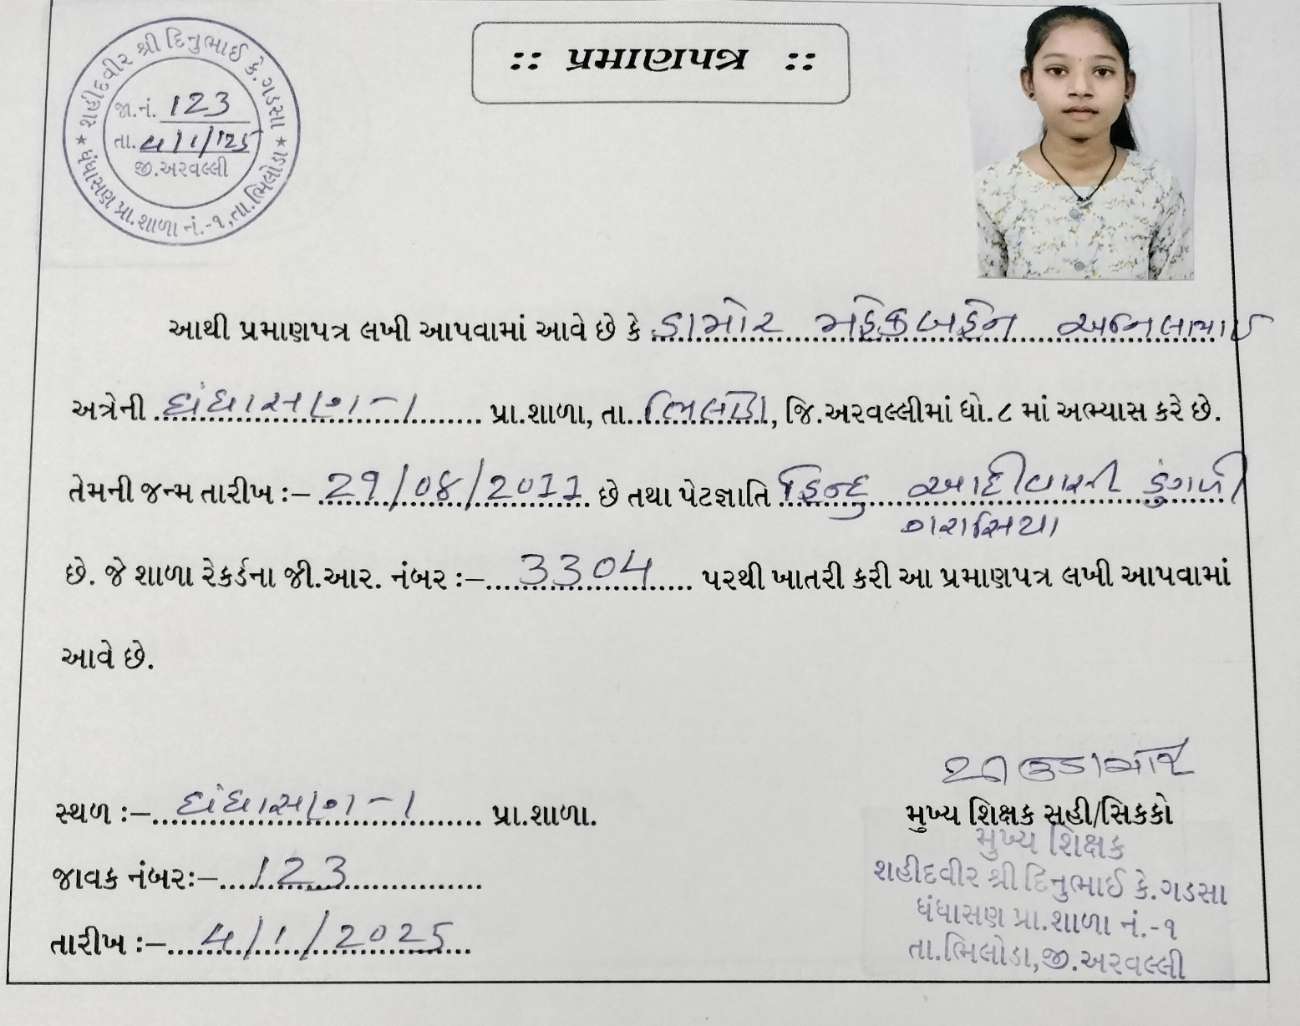 શહીદવીર શ્રી દિનુભાઈ કે.ગડસા
જા.નં. 123
તા. 4/1/125
જી.અરવલ્લી
★ ધંધાસણ પ્રા.શાળા નં.-૧,તા.ભિલોડા ★
:: પ્રમાણપત્ર ::
આથી પ્રમાણપત્ર લખી આપવામાં આવે છે કે ડામોર મહેકબહેન
અત્રેની ધંધાસણ-1 પ્રા.શાળા, તા. ભિલોડા, જિ.અરવલ્લીમાં ધો.૮ માં અભ્યાસ કરે છે.
તેમની જન્મ તારીખ :- 29/08/2011 છે તથા પેટજ્ઞાતિ હિન્દુ આદીવાસી ડુંગળી
ગરાસિયા
છે. જે શાળા રેકર્ડના જી.આર. નંબર :- 3304 પરથી ખાતરી કરી આ પ્રમાણપત્ર લખી આપવામાં
આવે છે.
સ્થળ :- ધંધાસણ-1 પ્રા.શાળા.
જાવક નંબર:- 123
તારીખ :- 4/1/2025
મુખ્ય શિક્ષક સહી/સિકકો
મુખ્ય શિક્ષક
શહીદવીર શ્રી દિનુભાઈ કે.ગડસા
ધંધાસણ પ્રા.શાળા નં.-૧
તા.ભિલોડા,જી.અરવલ્લી